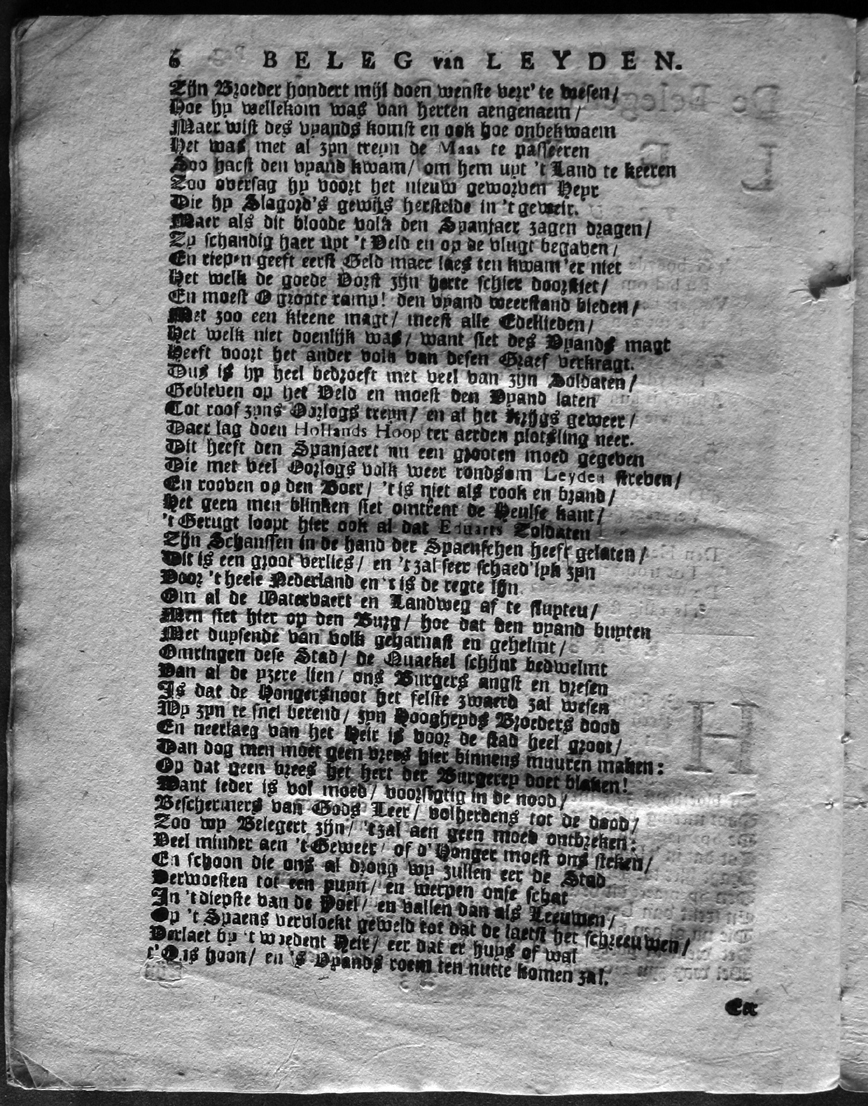 6 BELEG van LEYDEN.
Zijn Broeder hondert mijl doen wenste verr' te wesen/
Hoe hy wellekom was van herten aengenaem/
Maer wist des vyands komst en ook hoe onbekwaem
Het was met al zyn treyn de Maas te passeeren
Soo haest den vyand kwam/ om hem uyt 't Land te keeren
Zoo oversag hy voort het nieuw geworven Heyr
Die hy Slagord's gewijs herstelde in 't geweir.
Maer als dit bloode volk den Spanjaer zagen dragen/
Zy schandig haer uyt 't Veld en op de vlugt begaven/
En riepen geeft eerst Geld maer laes ten kwam 'er niet
Het welk de goede Vorst zijn herte schier doorstiet/
En moest O groote ramp! den vyand weerstand bieden/
Met zoo een kleene magt/ meest alle Edelieden/
Het welk niet doenlijk was/ want siet des Vyands magt
Heeft voort het ander volk van desen Graef verkragt.
Dus is hy heel bedroeft met veel van zijn Soldaten/
Gebleven op het Veld en moest den Vyand laten
Tot roof zyns Oorlogs treyn/ en al het Krijgs geweer/
Daer lag doen Hollands Hoop ter aerden plotsling neer.
Dit heeft den Spanjaert nu een grooten moed gegeven
Die met veel Oorlogs volk weer rondsom Leyden streven/
En rooven op den Boer/ 't is niet als rook en brand/
Het geen men blinken siet omtrent de Heulse kant/
't Gerugt loopt hier ook al dat Eduarts Zoldaten
Zijn Schanssen in de hand der Spaenschen heeft gelaten/
Dit is een groot verlies/ en 't zal seer schaed'lyk zyn
Voor 't heele Nederland en 't is de regte lijn
Om al de Watervaert en Landweg af te sluyten/
Men siet hier op den Burg/ hoe dat den vyand buyten
Met duysende van volk geharnast en gehelmt/
Omringen dese Stad/ de Quaekel schijnt bedwelmt
Van al de yzere lien/ ons Burgers angst en vresen
Is dat de Hongersnoot het felste zwaerd zal wesen
Wy zyn te snel berend/ zyn Hoogheyds Broeders dood
En neerlaeg van het Heir is voor de stad heel groot/
Dan dog men moet geen vrees hier binnens muuren maken:
Op dat geen vrees het hert der Burgerey doet blaken!
Want ieder is vol moed/ voorsigtig in de nood/
Beschermers van Gods Leer/ volherdens tot de dood/
Zoo wy Belegert zijn/ 't zal aen geen moed ontbreken:
Veel minder aen 't Geweer/ of d'Honger moest ons steken/
En schoon die ons al drong wy zullen eer de Stad
Verwoesten tot een puyn/ en werpen onse schat
In 't diepste van de Poel/ en vallen dan als Leeuwen/
Op 't Spaens vervloekt geweld tot dat de laetst het schreeuwen/
Verlaet by 't wredent Heir/ eer dat er huys of wal
t'Ons hoon/ en 's Vyands roem ten nutte komen zal.